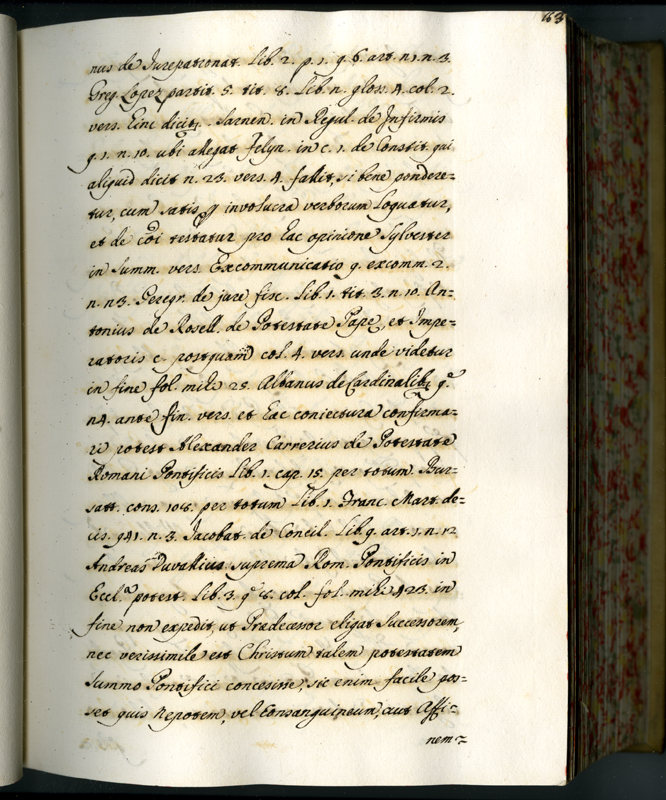 63
nus de Jurepatronat. Lib. 2. p. 1. q. 6. art. n1. n. 3.
Greg. Lopez partit. 5. tit. 8. Lib. n. glos. 4. col. 2.
vers. hinc dicit. Sarnen. in Regul. de Infirmis
q. 1. n. 10. ubi allegat Felyn. in c. 1. de Constit. qui
aliquid dicit n. 23. vers. 4. fallit, si bene pondere=
tur, cum satis p involucra verborum loquatur,
et de coi testatur pro hac opinione Sylvester
in Summ. vers. Excommunicatio 9. excomm. 2.
n. n3. Peregr. de jure fisc. Lib. 1. tit. 3. n. 10. An=
tonius de Rosell. de Potestate Pape, et Impe=
ratoris c. postquam col. 4. vers. unde videtur
in fine fol. mihi 25. Albanus de Cardinalib. q.
n4. ante fin. vers. et hac coniectura confirma=
ri potest Alexander Carrerius de Potestate
Romani Pontificis Lib. 1. cap. 15. per totum. Bur=
satt. cons. 108. per totum Lib. 1. Franc. Marc. de=
cis. 941. n. 3. Jacobat. de Concil. Lib. 9. art. 1. n. 12
Andreas Duvallius suprema Rom. Pontificis in
Eccl.ª potest. Lib. 3. q. 8. col. fol. mihi 423. in
fine non expedit, ut Predecessor eligat Successorem,
nec verissimile est Christum talem potestatem
Summo Pontifici concesisse, sic enim facile pos=
set quis Nepotem, vel Consanguineum, aut Affi=
nem